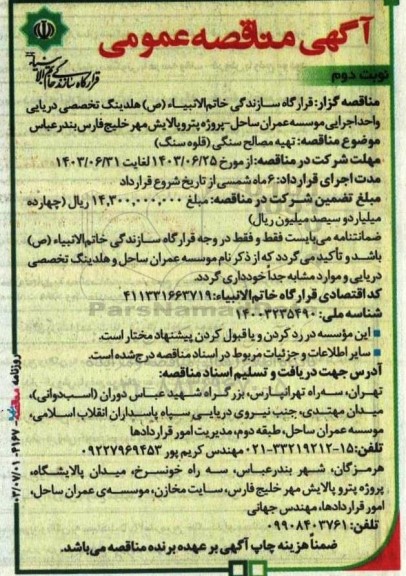 آگهی مناقصه عمومی
قرارگاه سازندگی خاتم الانبیاء
نوبت دوم
مناقصه گزار: قرارگاه سازندگی خاتم‌الانبیاء (ص) هلدینگ تخصصی دریایی
واحد اجرایی موسسه عمران ساحل-پروژه پتروپالایش مهر خلیج‌فارس بندرعباس
موضوع مناقصه: تهیه مصالح سنگی (قلوه سنگ)
مهلت شرکت در مناقصه: از مورخ ۱۴۰۳/۰۶/۲۵ لغایت ۱۴۰۳/۰۶/۳۱
مدت اجرای قرارداد: ۶ ماه شمسی از تاریخ شروع قرارداد
مبلغ تضمین شرکت در مناقصه: مبلغ ۱۴,۳۰۰,۰۰۰,۰۰۰ ریال (چهارده
میلیارد و سیصد میلیون ریال)
ضمانتنامه می‌بایست فقط و فقط در وجه قرارگاه سازندگی خاتم‌الانبیاء (ص)
باشد و تأکید می‌گردد که از ذکر نام موسسه عمران ساحل و هلدینگ تخصصی
دریایی و موارد مشابه جداً خودداری گردد.
کد اقتصادی قرارگاه خاتم‌الانبیاء: ۴۱۱۳۳۱۶۶۳۷۱۹
شناسه ملی: ۱۴۰۰۳۲۳۵۴۹۰
ParsNamad
■ این مؤسسه در رد کردن و یا قبول کردن پیشنهاد مختار است.
■ سایر اطلاعات و جزئیات مربوط در اسناد مناقصه درج شده است.
آدرس جهت دریافت و تسلیم اسناد مناقصه:
تهران، سه‌راه تهرانپارس، بزرگراه شهید عباس دوران (اسب‌دوانی)،
میدان مهتدی، جنب نیروی دریایی سپاه پاسداران انقلاب اسلامی،
موسسه عمران ساحل، طبقه دوم، مدیریت امور قراردادها
تلفن: ۱۵-۳۳۲۱۹۲۱۲-۰۲۱ مهندس کریم پور ۰۹۲۲۷۹۶۹۴۵۳
هرمزگان، شهر بندرعباس، سه راه خونسرخ، میدان پالایشگاه،
پروژه پترو پالایش مهر خلیج فارس، سایت مخازن، موسسه‌ی عمران ساحل،
امور قراردادها، مهندس جهانی
تلفن: ۰۹۹۰۸۴۰۳۷۶۱
ضمناً هزینه چاپ آگهی بر عهده برنده مناقصه می‌باشد.
روزنامه ۴۱۶۷- ۰۳/۰۷/۰۱